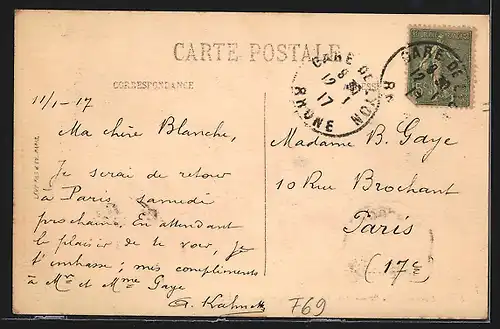 CARTE POSTALE
CORRESPONDANCE
11/1-17
Ma chère Blanche,
Je serai de retour
à Paris samedi
prochain. En attendant
le plaisir de te voir, je
t'embrasse; mes compliments
à Mr et Mme Gaye
GARE DE LYON
8
12 1
17
RHONE
GARE DE L
Madame B. Gaye
10 Rue Brochant
Paris
(17e
769